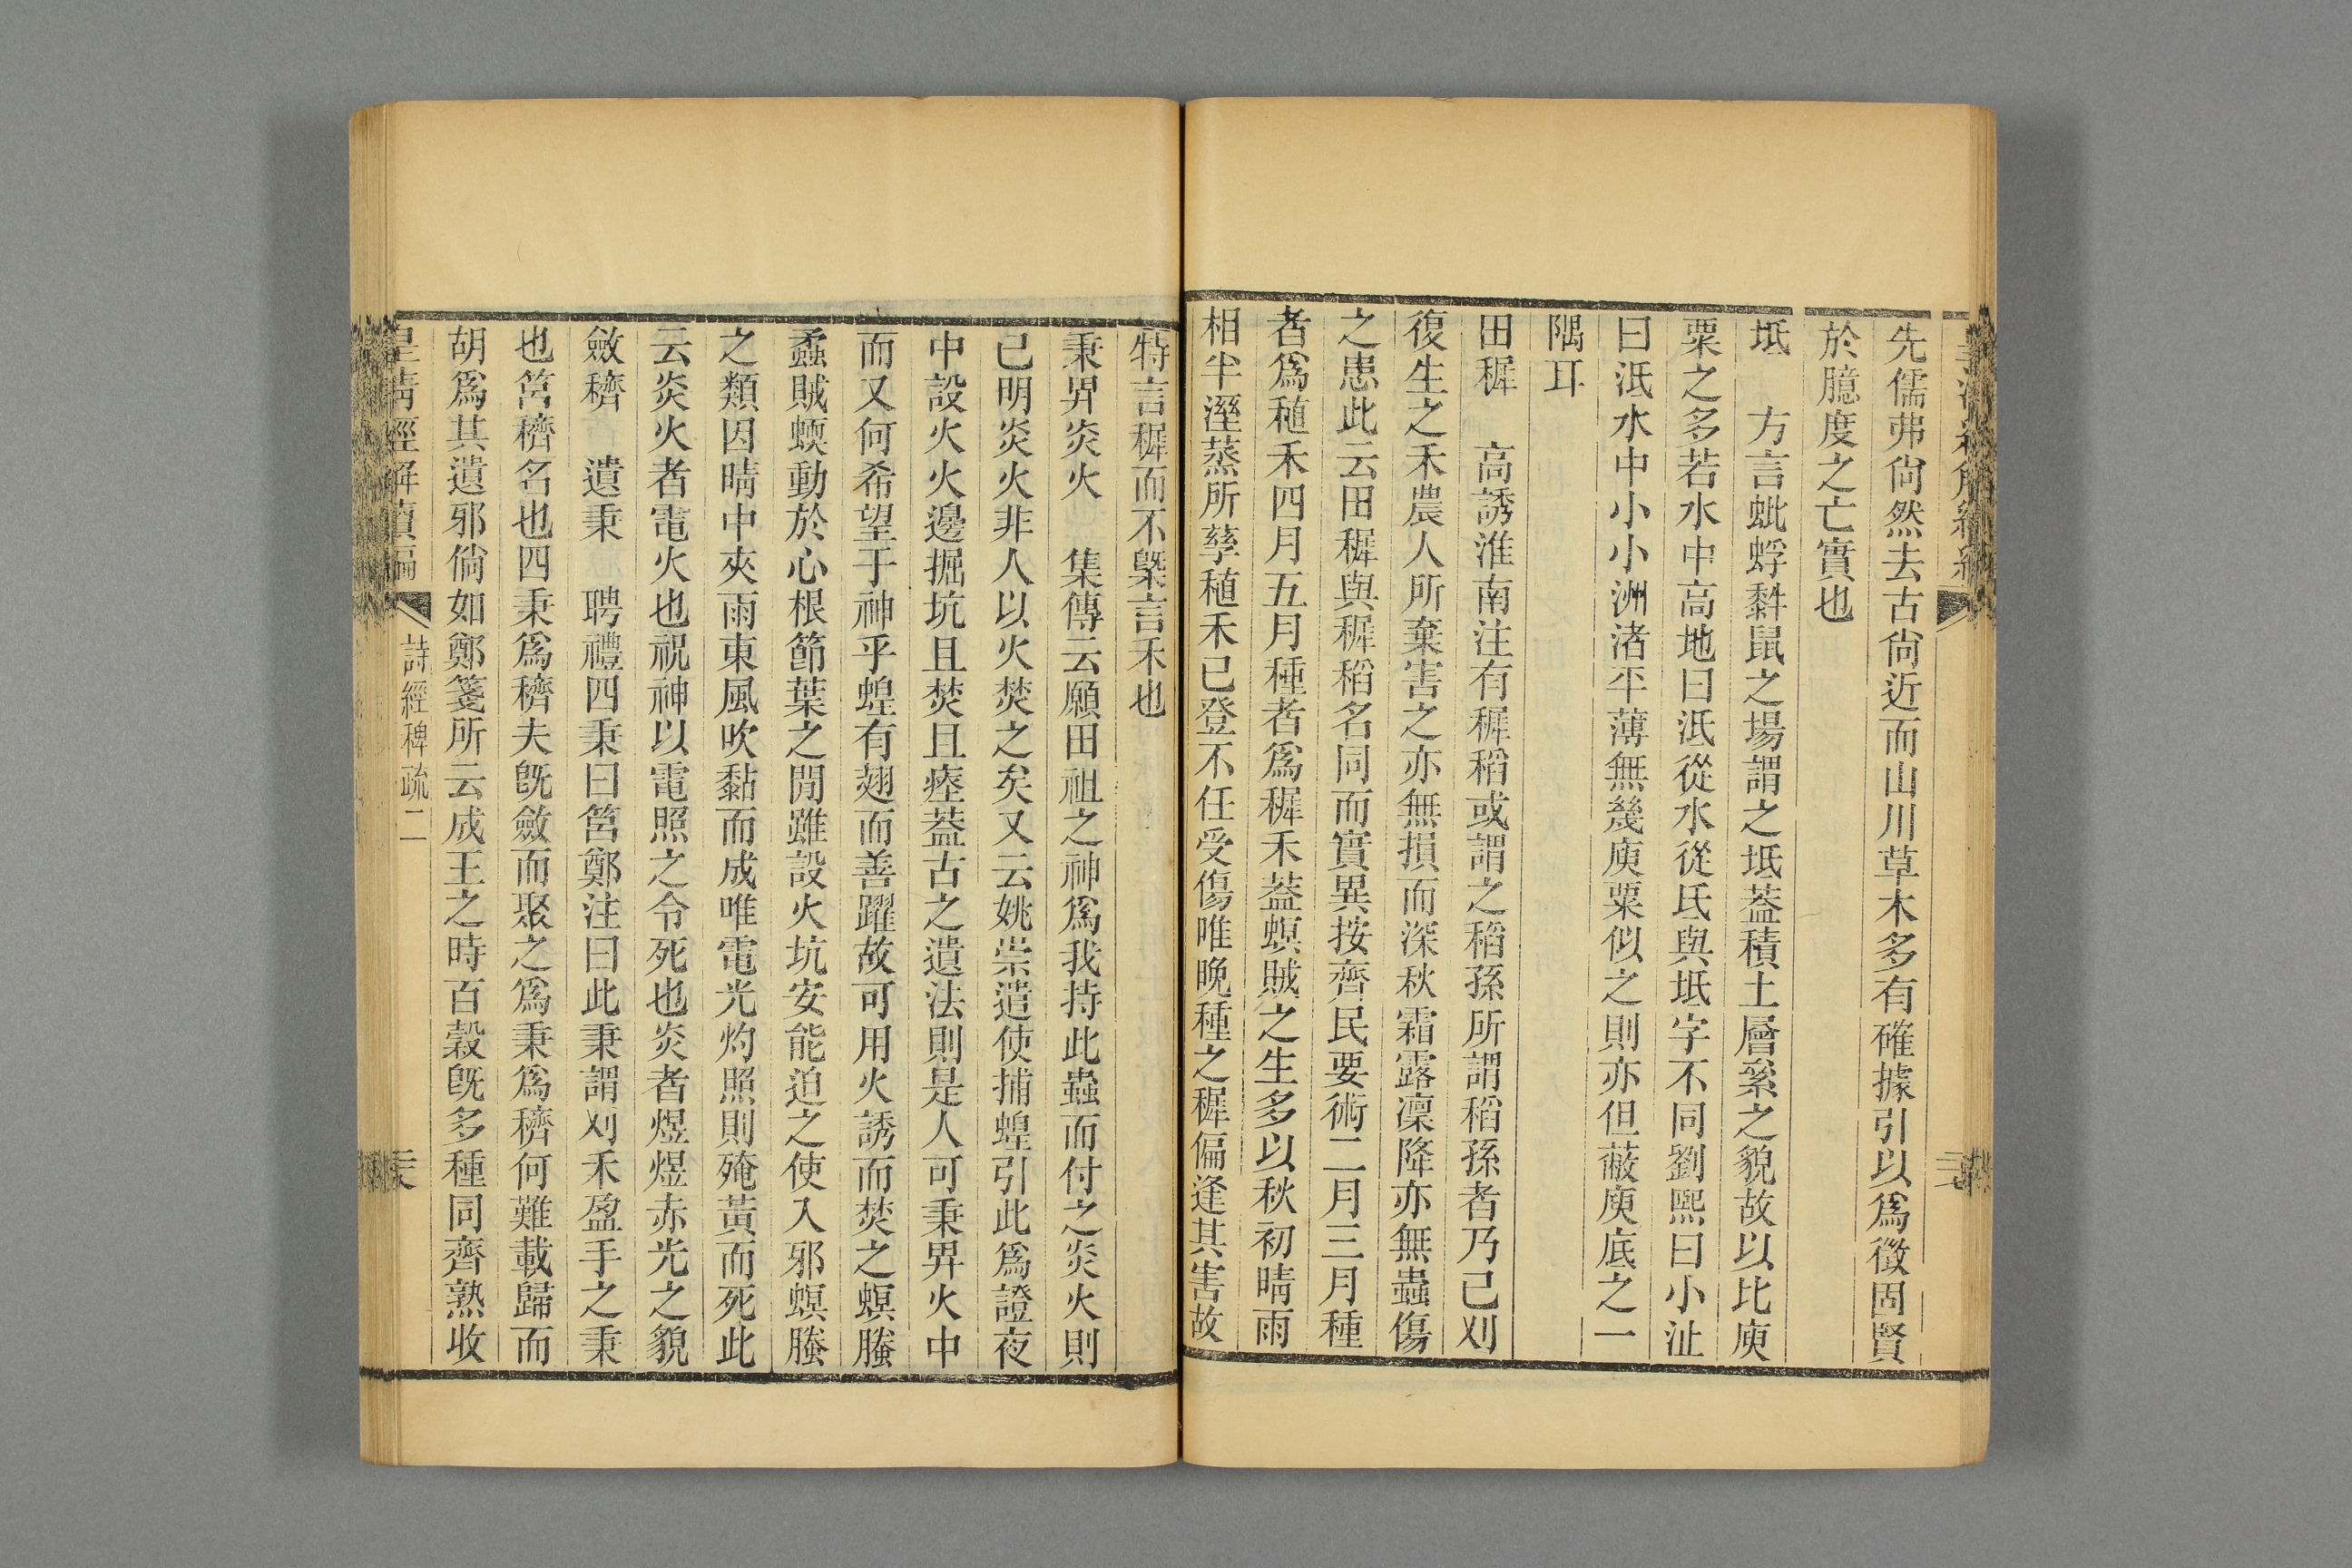 先儒弗尙然去古尙近而山川草木多有確據引以爲徵固賢
於臆度之亡實也
坻 方言蚍蜉黔鼠之場謂之坻蓋積土層絫之貌故以比庾
粟之多若水中高地曰泜從水從氐與坻字不同劉熙曰小沚
曰泜水中小小洲渚平薄無幾庾粟似之則亦但蔽庾底之一
隅耳
田穉 高誘淮南注有穉稻或謂之稻孫所謂稻孫者乃已刈
復生之禾農人所棄害之亦無損而深秋霜露凜降亦無蟲傷
之患此云田穉與穉稻名同而實異按齊民要術二月三月種
者爲稙禾四月五月種者爲穉禾蓋螟賊之生多以秋初晴雨
相半溼蒸所孳稙禾已登不任受傷唯晚種之穉偏逢其害故
特言穉而不槩言禾也
秉畀炎火 集傳云願田祖之神爲我持此蟲而付之炎火則
已明炎火非人以火焚之矣又云姚崇遣使捕蝗引此爲證夜
中設火火邊掘坑且焚且瘞蓋古之遺法則是人可秉畀火中
而又何希望于神乎蝗有翅而善躍故可用火誘而焚之螟螣
蟊賊蝡動於心根節葉之閒雖設火坑安能迫之使入邪螟螣
之類因晴中夾雨東風吹黏而成唯電光灼照則殗黃而死此
云炎火者電火也祝神以電照之令死也炎者煜煜赤光之貌
斂穧 遺秉 聘禮四秉曰筥鄭注曰此秉謂刈禾盈手之秉
也筥穧名也四秉爲穧夫旣斂而聚之爲秉爲穧何難載歸而
胡爲其遺邪倘如鄭箋所云成王之時百穀旣多種同齊熟收
皇淸經解續編
詩經稗疏二